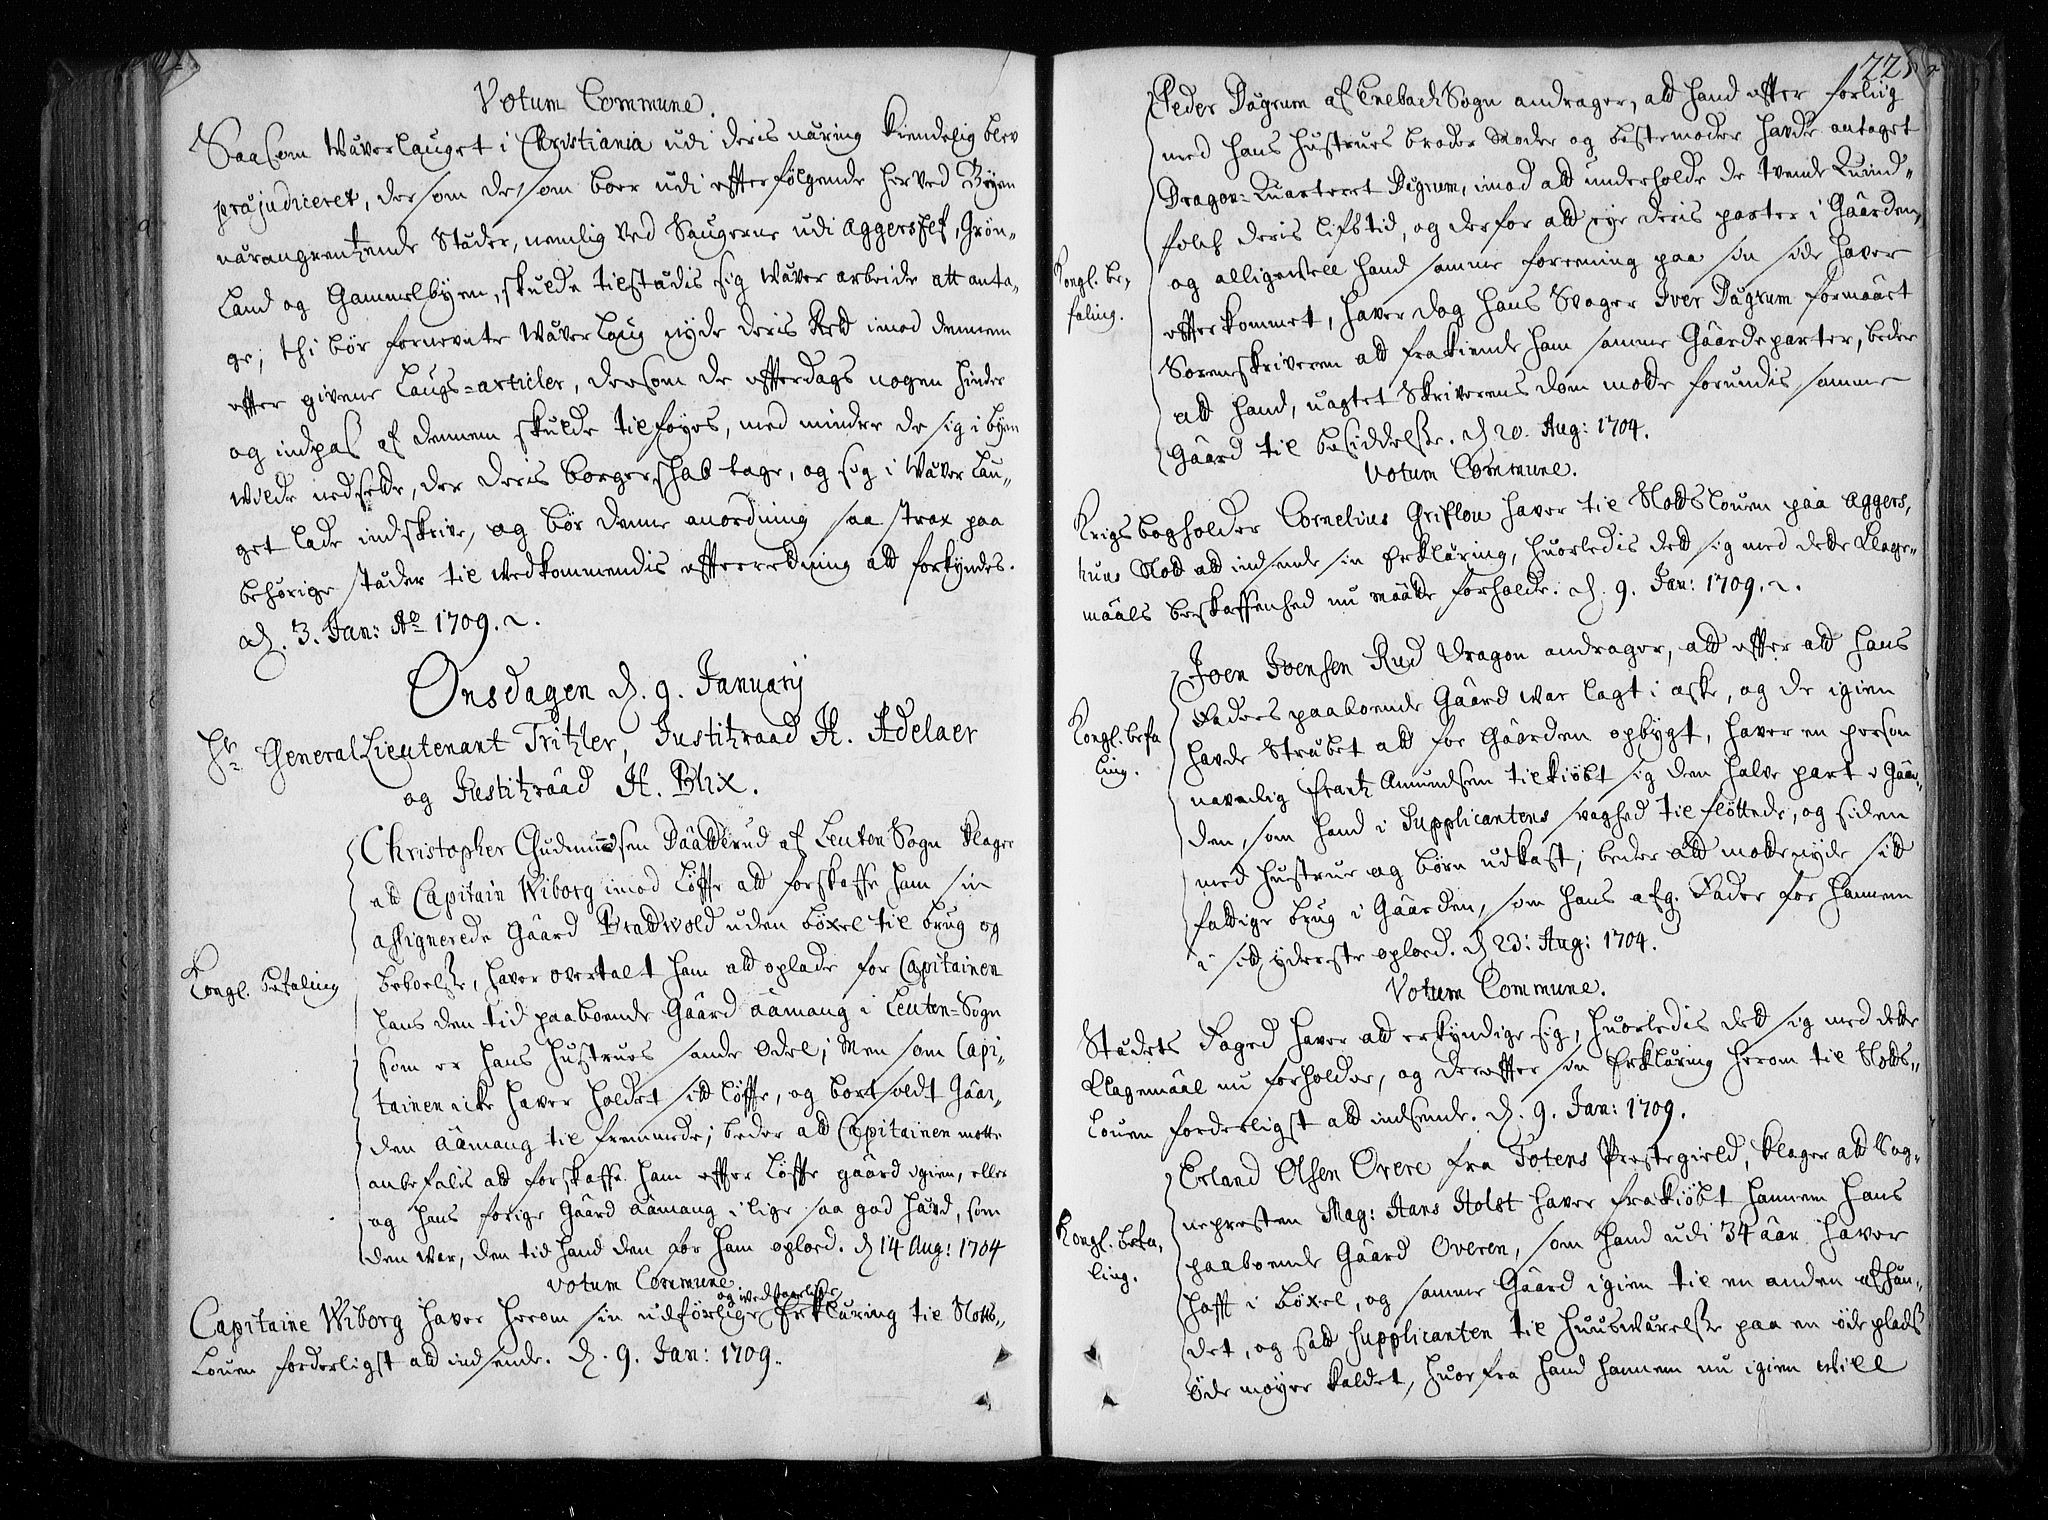 Votum Commune.
Saasom Wæverlauget i Christiania udi deris næring kiendelig blev
præjudiceret, dersom de som boer udi effterfølgende her ved Byen
nærangrentzende Stæder, nemlig ved Saugerne udi Aggers Elf, Grøn-
land og Gammelbyen, skulde tilstædis sig wæver arbeide att anta-
ge; thi bør fornevnte Wæverlaug nyde deris Rett imod dennem
effter givene Laugs-articler, dersom de effterdags nogen hinder
og indpas af dennem skulde tilføyes, med mindre de sig i byen
wilde nedsette, der deris borgerschab tage, og sig i Wæver Lau-
get lade indskrive, og bør denne anordning saa strax paa
behørige stæder til vedkommendis effterretning att forkyndes.
d. 3. Jan: Ao 1709.
Onsdagen d. 9. Januarij
Hr. General Lieutenant Tritzler, Justitzraad H. Adelaer
og Justitzraad H. Blix.
Christopher Gudmundsen Daatterud af Leuten Sogn klager
att Capitain Wiborg imod løffte att forskaffe ham sin
assignerede Gaard Bradwold uden bøxel til brug og
Kongl. befaling
beboelse, haver overtalt ham att oplade for Capitainen
hans den tid paaboende Gaard Aamang i Leuten-Sogn
som er hans hustrues sande odel; Men som Capi-
tainen icke haver holdet sitt løffte, og bortsoldt Gaar-
den Aamang til fremmede; beder att Capitainen motte
anbefalis att forskaffe ham effter løffte gaard igien, eller
og hans forige Gaard Aamang i lige saa god hævd, som
den war, den tid hand den for ham oploed. d 14 Aug: 1704
Votum Commune
og wedbørlige
Capitaine Wiborg haver herom sin udførlige Erklæring til Slotts-
Louen forderligst att indsende. d. 9. Jan: 1709.
225
Peder Dagrum af Enebach Sogn andrager, att hand effter forliig
med hans hustrues broder Moder og bestemoder havde antaget
Dragon-Quarteret Dagrum, imod att underholde de tvende Quind-
folch deris lifstid, og derfor att eye deris parter i Gaarden,
og alligevell hand samme foreening paa sin side haver
Kongl. be-
faling.
effterkommet, haver dog hans Svager Iver Dagrum formaaet
Sorenskriveren att frakiende ham samme Gaardeparter, beder
att hand, uagtet Skriverens dom motte forundis samme
Gaard til besiddelse. d 20. Aug: 1704.
Votum Commune.
Krigsbogholder Cornelius Griflou haver til Slotslouen paa Aggers-
huus Slott att indsende sin Erklæring, huorledis dett sig med dette Klage-
maals beskaffenhed nu maatte forholde. d. 9. Jan: 1709.
Joen Joensen Rud Dragon andrager, att effter att hans
Faders paaboende Gaard war lagt i aske, og de igien
Kongl. befa
ling.
havde stræbet att for Gaarden opbygt, haver en person
navnlig Frantz Amundsen tilkiøbt sig den halve part i Gaar-
den, som hand i Supplicantens svaghed tilfløttede, og siden
med hustrue og børn udkast; beder att motte nyde sitt
fattige brug i Gaarden, som hans afg. Fader for hannem
i sitt yderste oploed. d 23: Aug: 1704.
Votum Commune.
Stædets Foged haver att erkyndige sig, huorledis dett sig med dette
Klagemaal nu forholder, og dereffter sin Erklæring herom til Slotts-
Louen forderligst att indsende. d. 9. Jan: 1709.
Erland Olsen Overe fra Totens Prestegield, klager att Sog-
nepresten Mag: Hans Holst haver frakiøbt hannem hans
Kongl. befa-
ling.
paaboende Gaard Overen, som hand udi 34 aar haver
hafft i bøxel, og samme Gaard igien til en anden afhæn-
det, og satt Supplicanten til huusværelse paa en øde plads
øde møyer kaldet, huorfra hand hannem nu igien will